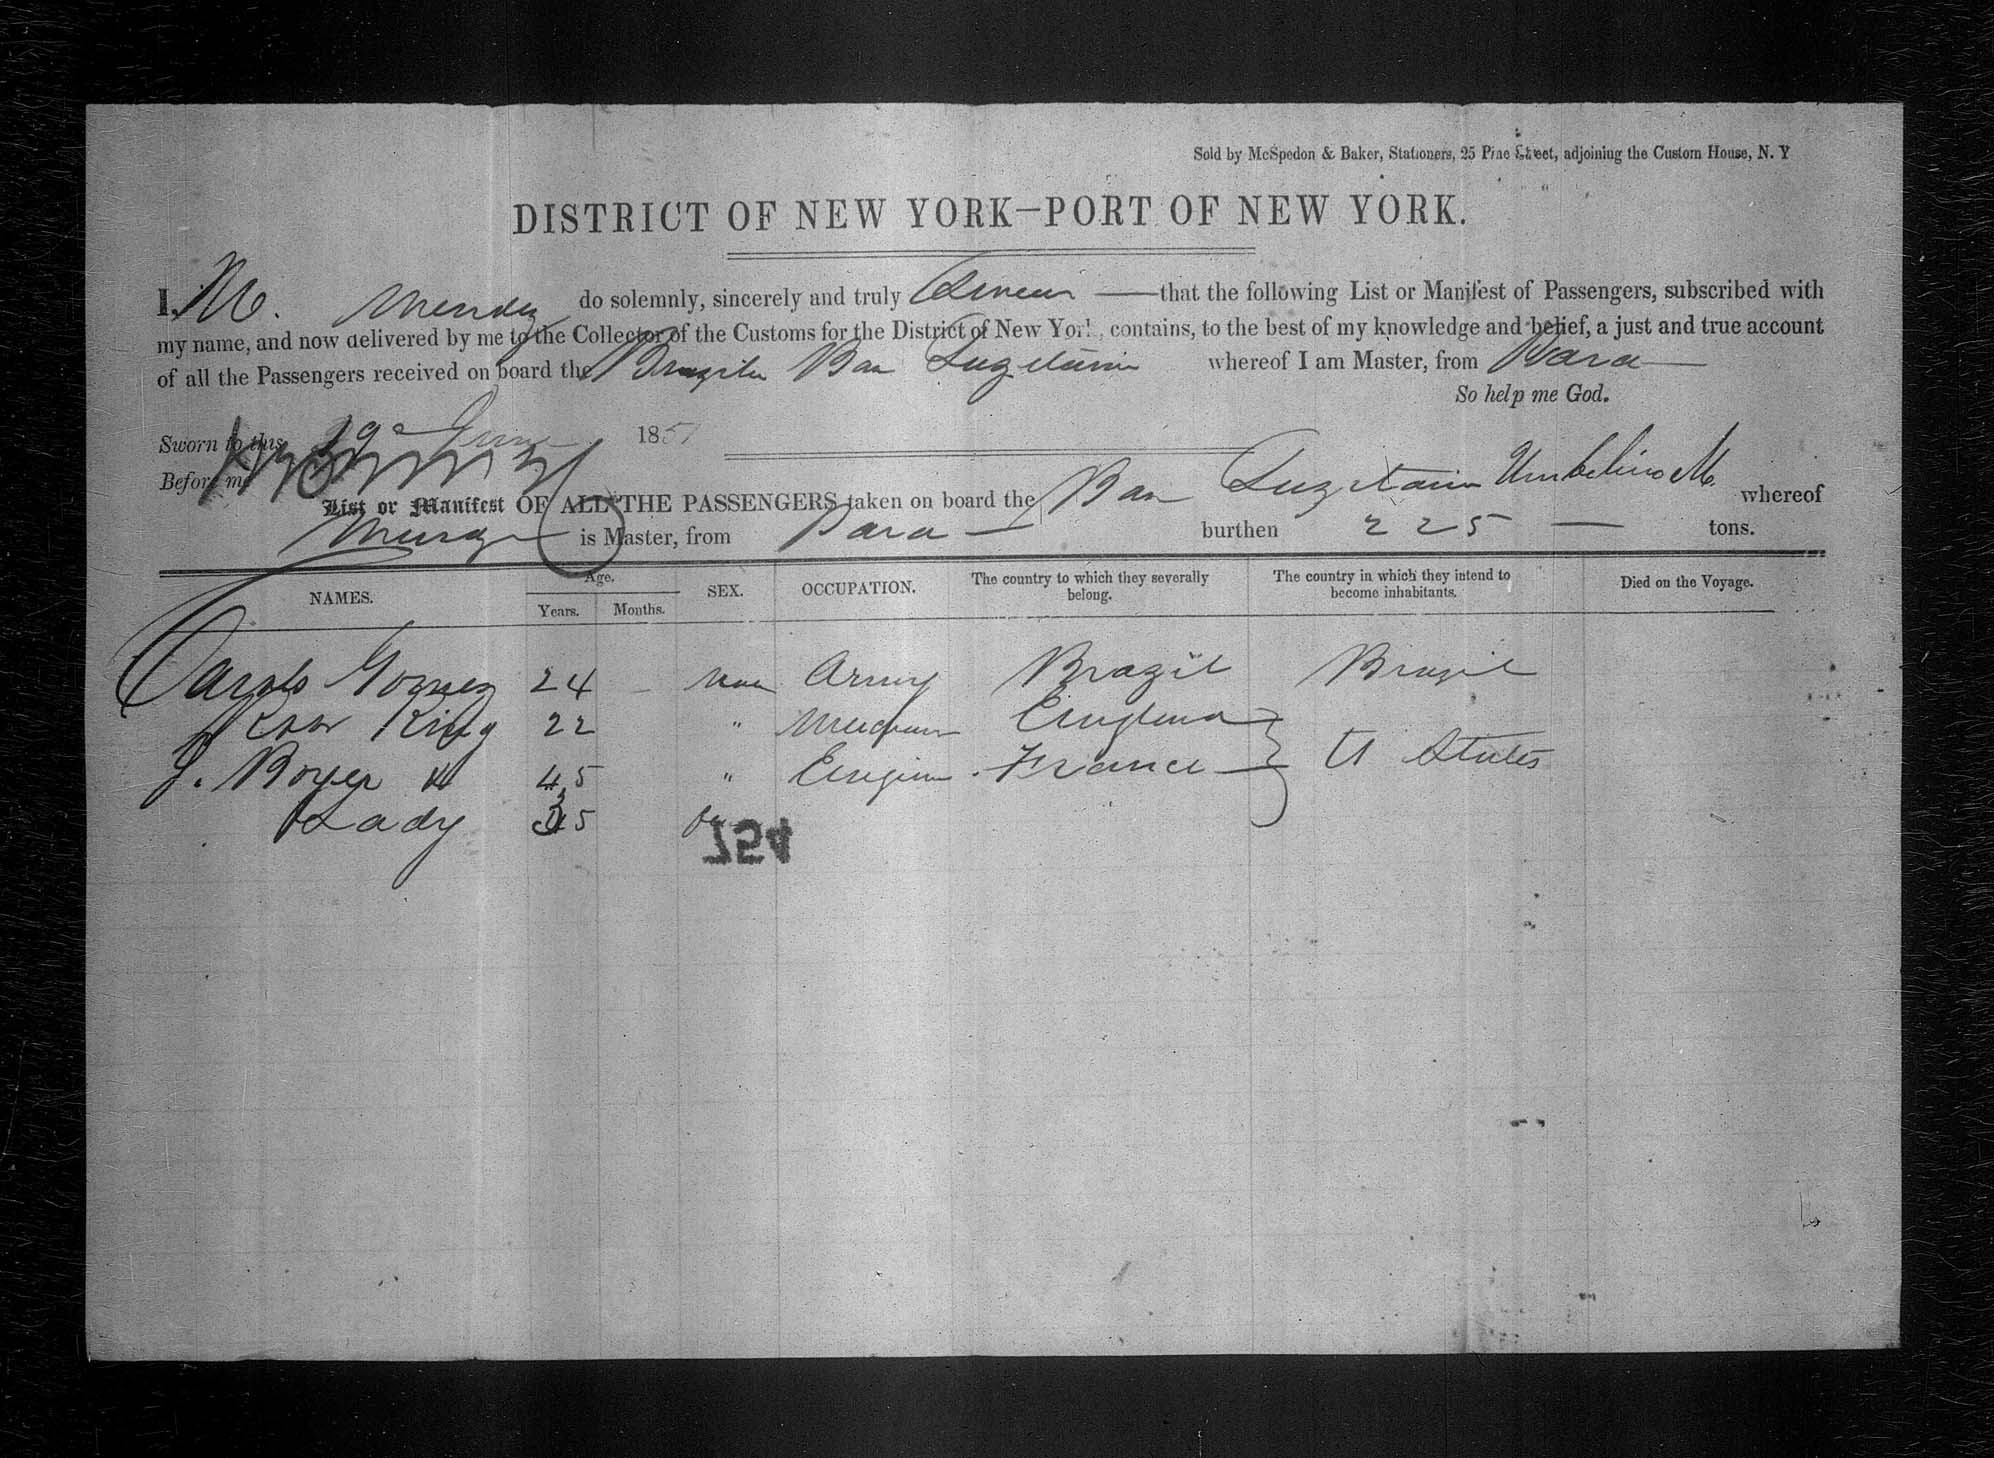 Sold by McSpedon & Baker, Stationers, 25 Pine Street, adjoining the Custom House, N. Y
DISTRICT OF NEW YORK—PORT OF NEW YORK.
I, M. Mendez do solemnly, sincerely and truly Swear — that the following List or Manifest of Passengers, subscribed with
my name, and now delivered by me to the Collector of the Customs for the District of New York, contains, to the best of my knowledge and belief, a just and true account
of all the Passengers received on board the Braziln Bar whereof I am Master, from Para —
So help me God.
Sworn to this 19 June 1851
Before me
List or Manifest OF ALL THE PASSENGERS taken on board the Bar Umbelino M. whereof
is Master, from Para — burthen 225 — tons.
NAMES. Age. SEX. OCCUPATION. The country to which they severally belong. The country in which they intend to become inhabitants. Died on the Voyage.
Years. Months.
Gomez 24 Army Brazil Brazil
King 22 " England
J. Boyer & 45 " France U States
Lady 35
754